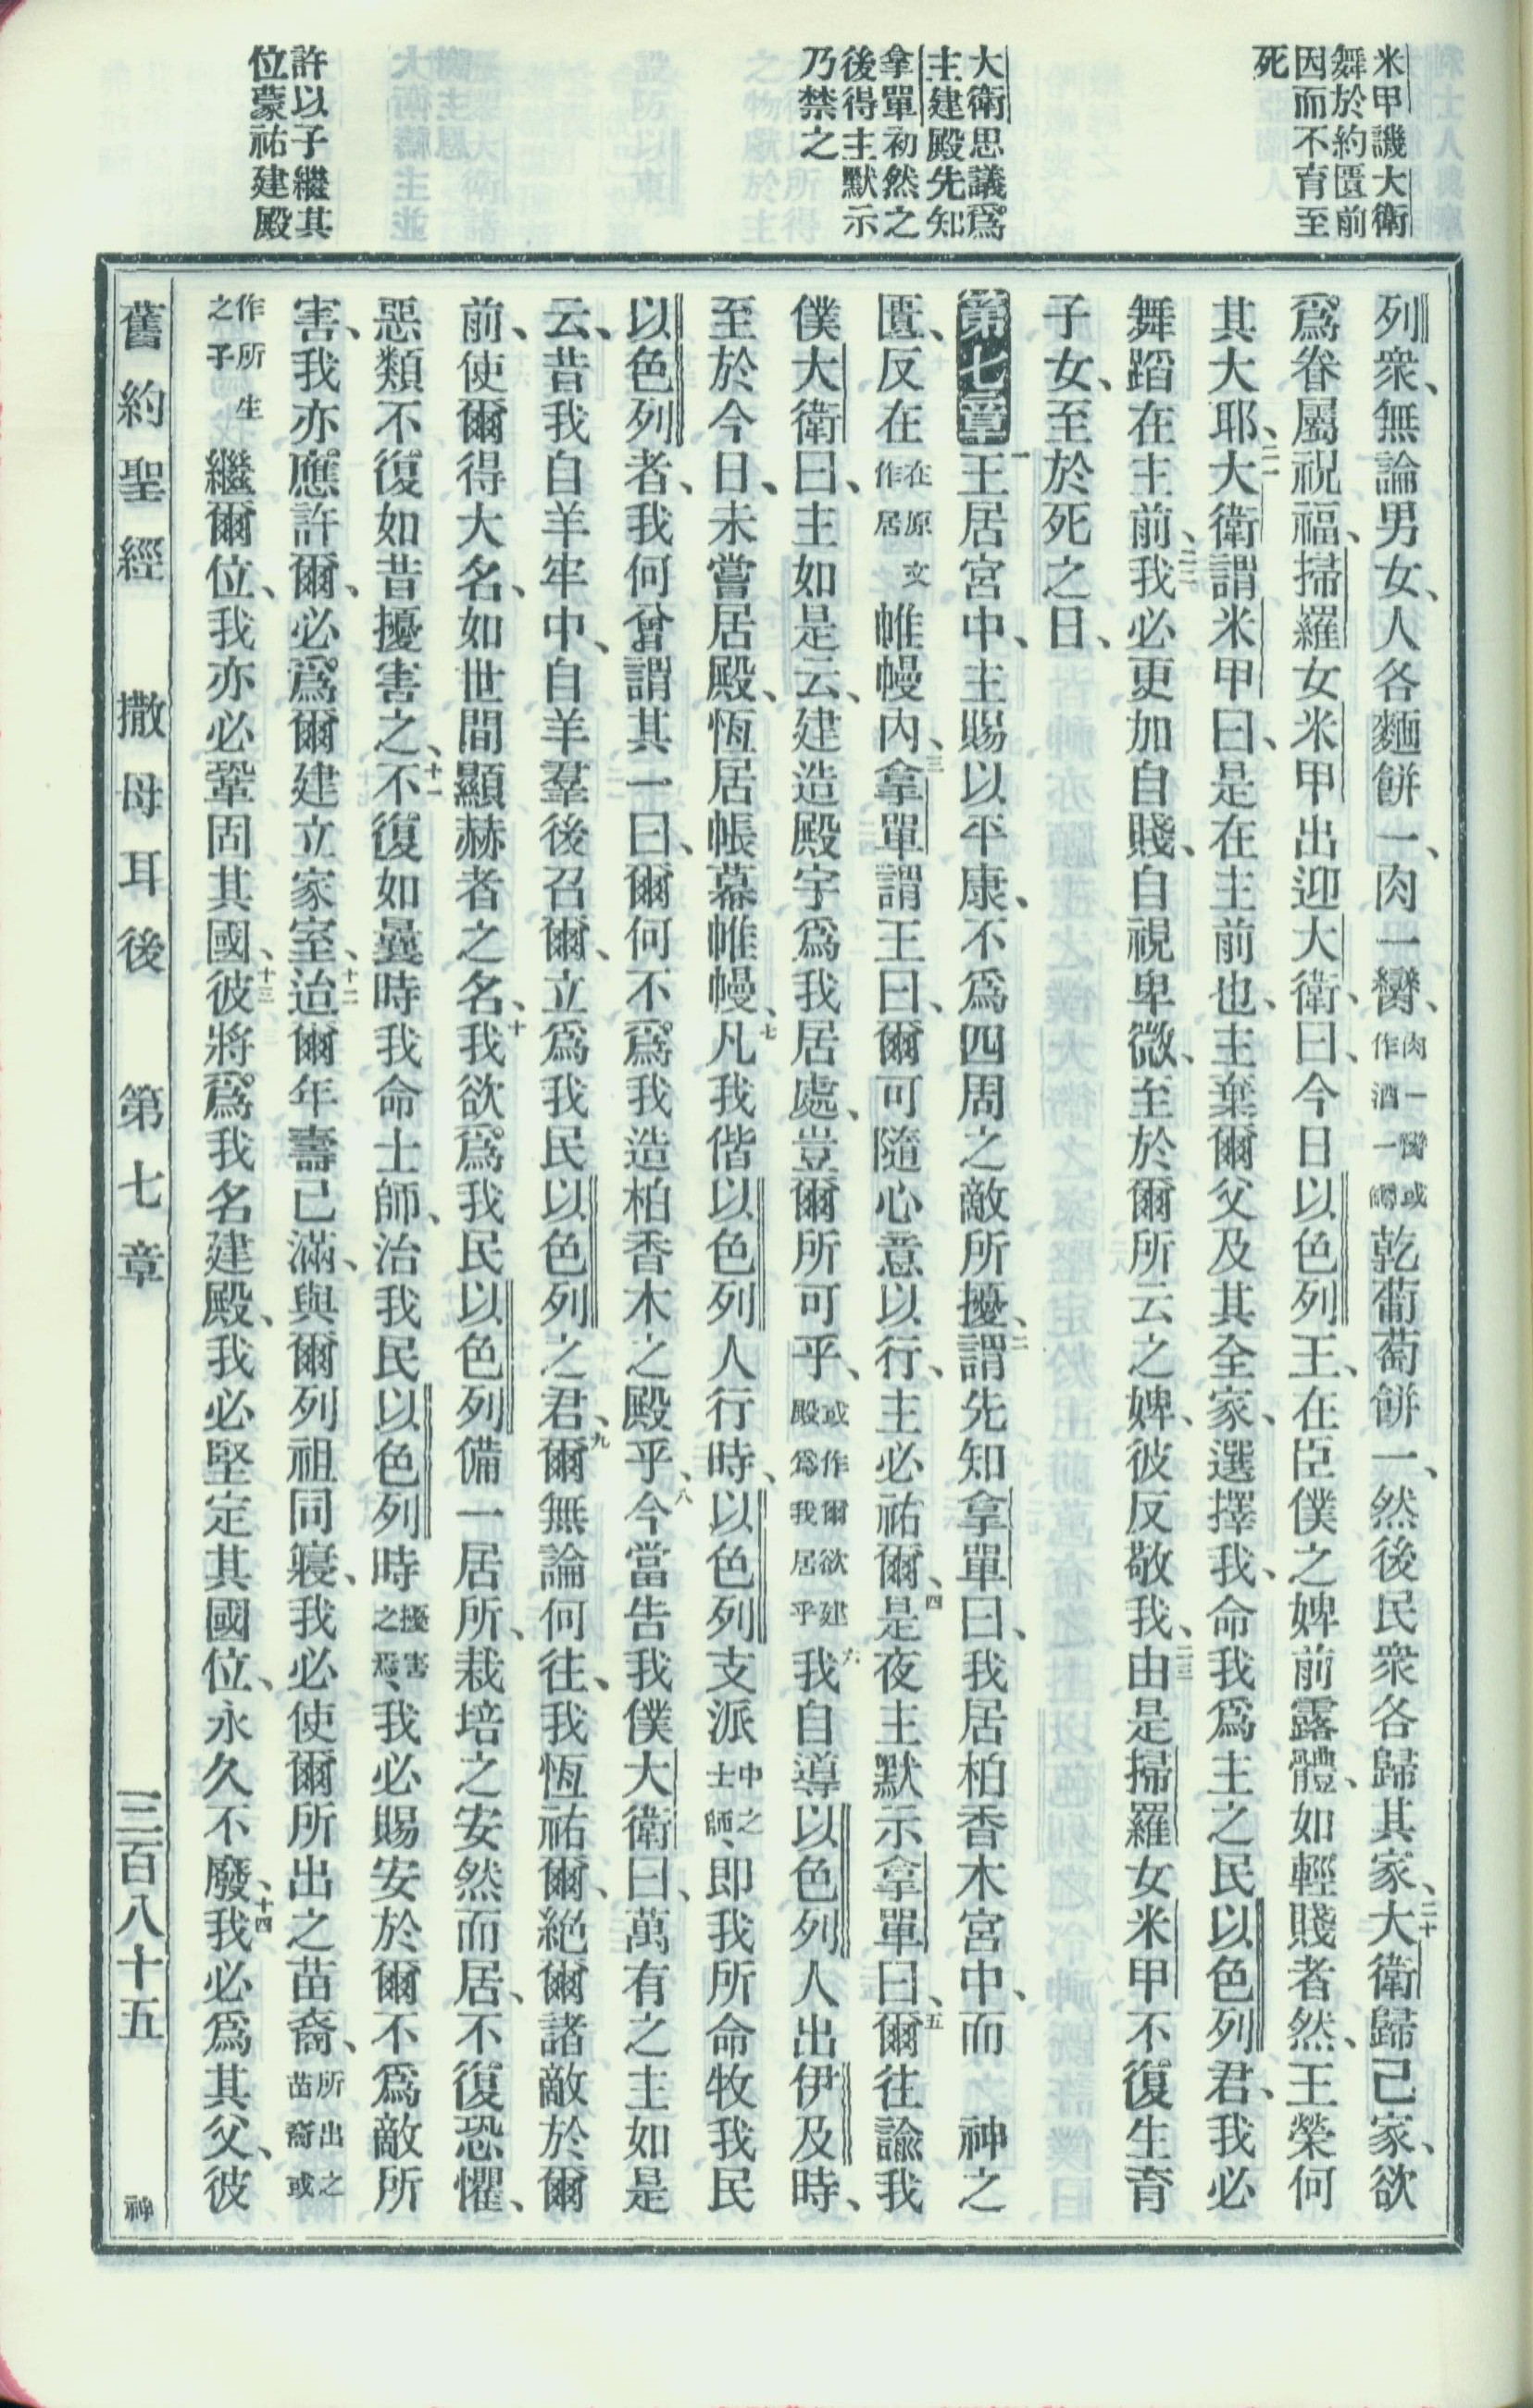 米甲譏大衛
舞於約匱前
因而不育至
死
大衛思議爲
主建殿先知
拿單初然之
後得主默示
乃禁之
許以子繼其
位蒙祐建殿
列衆、無論男女、人各麵餅一、肉一臠、肉一臠或作酒一罇乾葡萄餅一、然後民衆各歸其家、二十大衛歸己家、欲
爲眷屬祝福、掃羅女米甲出迎大衛、曰、今日以色列王、在臣僕之婢前露體、如輕賤者然、王榮何
其大耶、二一大衛謂米甲曰、是在主前也、主棄爾父及其全家、選擇我、命我爲主之民以色列君、我必
舞蹈在主前、二二我必更加自賤、自視卑微、至於爾所云之婢、彼反敬我、二三由是掃羅女米甲不復生育
子女、至於死之日、
第七章 一王居宮中、主賜以平康、不爲四周之敵所擾、二謂先知拿單曰、我居柏香木宮中、而 神之
匱、反在在原文作居帷幔內、三拿單謂王曰、爾可隨心意以行、主必祐爾、四是夜主默示拿單曰、五爾往諭我
僕大衛曰、主如是云、建造殿宇爲我居處、豈爾所可乎、或作爾欲建殿爲我居乎六我自導以色列人出伊及時、
至於今日、未嘗居殿、恆居帳幕帷幔、七凡我偕以色列人行時、以色列支派中之士師、即我所命牧我民
以色列者、我何曾謂其一曰、爾何不爲我造柏香木之殿乎、八今當告我僕大衛曰、萬有之主如是
云、昔我自羊牢中、自羊羣後召爾、立爲我民以色列之君、九爾無論何往、我恆祐爾、絕爾諸敵於爾
前、使爾得大名、如世間顯赫者之名、十我欲爲我民以色列備一居所、栽培之安然而居、不復恐懼、
惡類不復如昔擾害之、十一不復如曩時我命士師、治我民以色列時擾害之焉、我必賜安於爾不爲敵所
害、我亦應許爾、必爲爾建立家室、十二迨爾年壽已滿、與爾列祖同寢、我必使爾所出之苗裔、所出之苗裔或
作所生之子繼爾位、我亦必鞏固其國、十三彼將爲我名建殿、我必堅定其國位、永久不廢、十四我必爲其父、彼
舊約聖經 撒母耳後 第七章 三百八十五 神